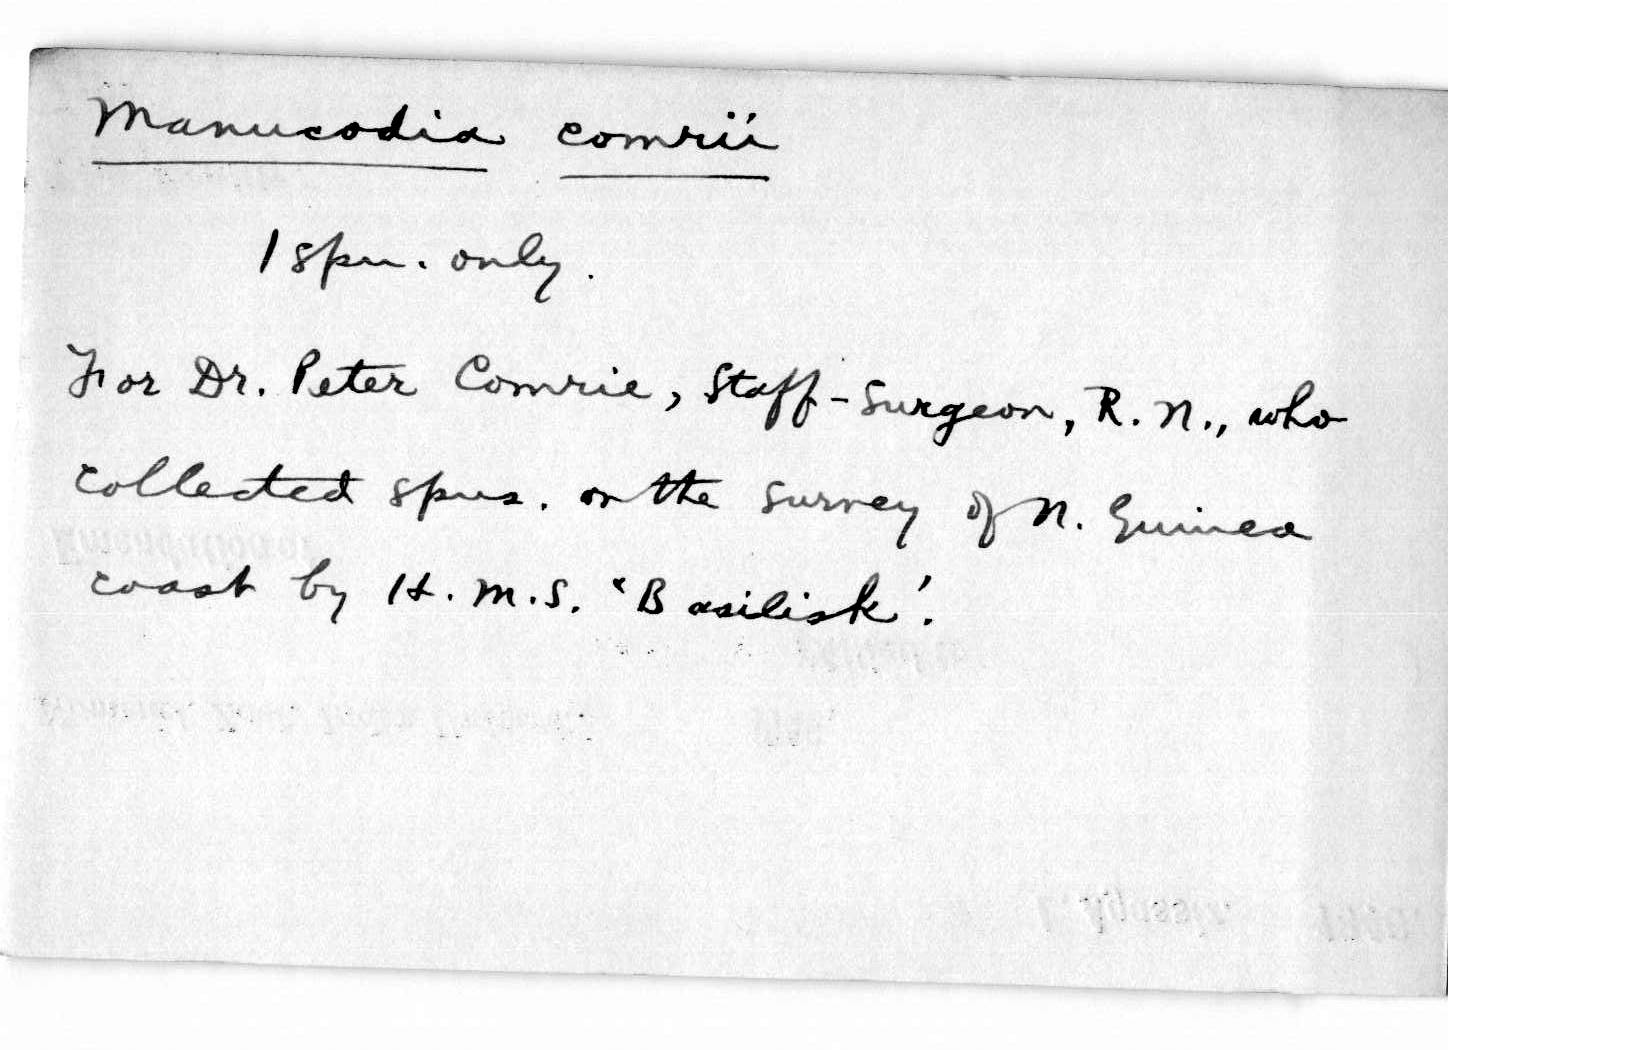 Manucodia comrii
1 spn. only.
For Dr. Peter Comrie, Staff-Surgeon, R.N., who
collected spns. on the survey of N. Guinea
coast by H.M.S. 'Basilisk'.